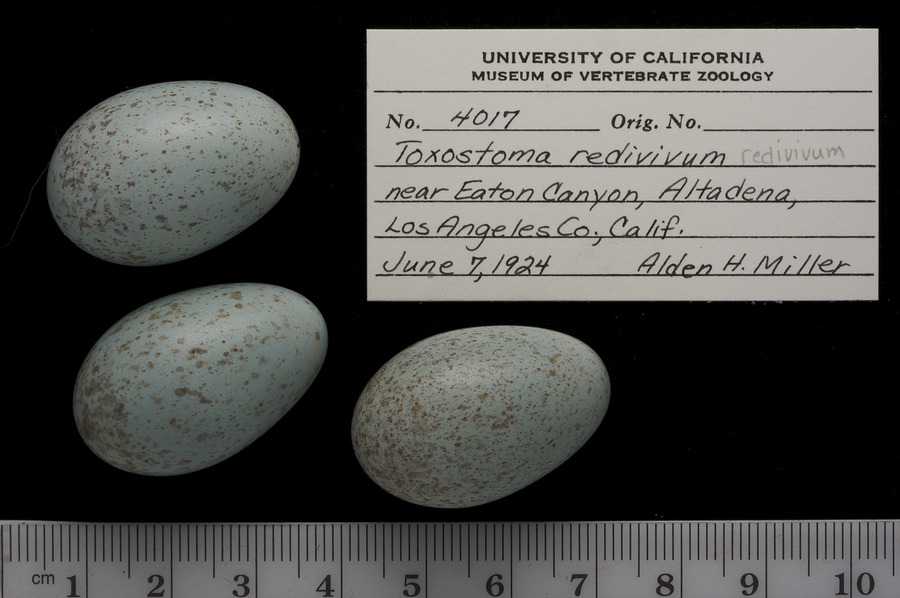 UNIVERSITY OF CALIFORNIA
MUSEUM OF VERTEBRATE ZOOLOGY
No. 4017 Orig. No.
Toxostoma redivivum redivivum
near Eaton Canyon, Altadena,
Los Angeles Co., Calif.
June 7, 1924 Alden H. Miller
cm 1 2 3 4 5 6 7 8 9 10